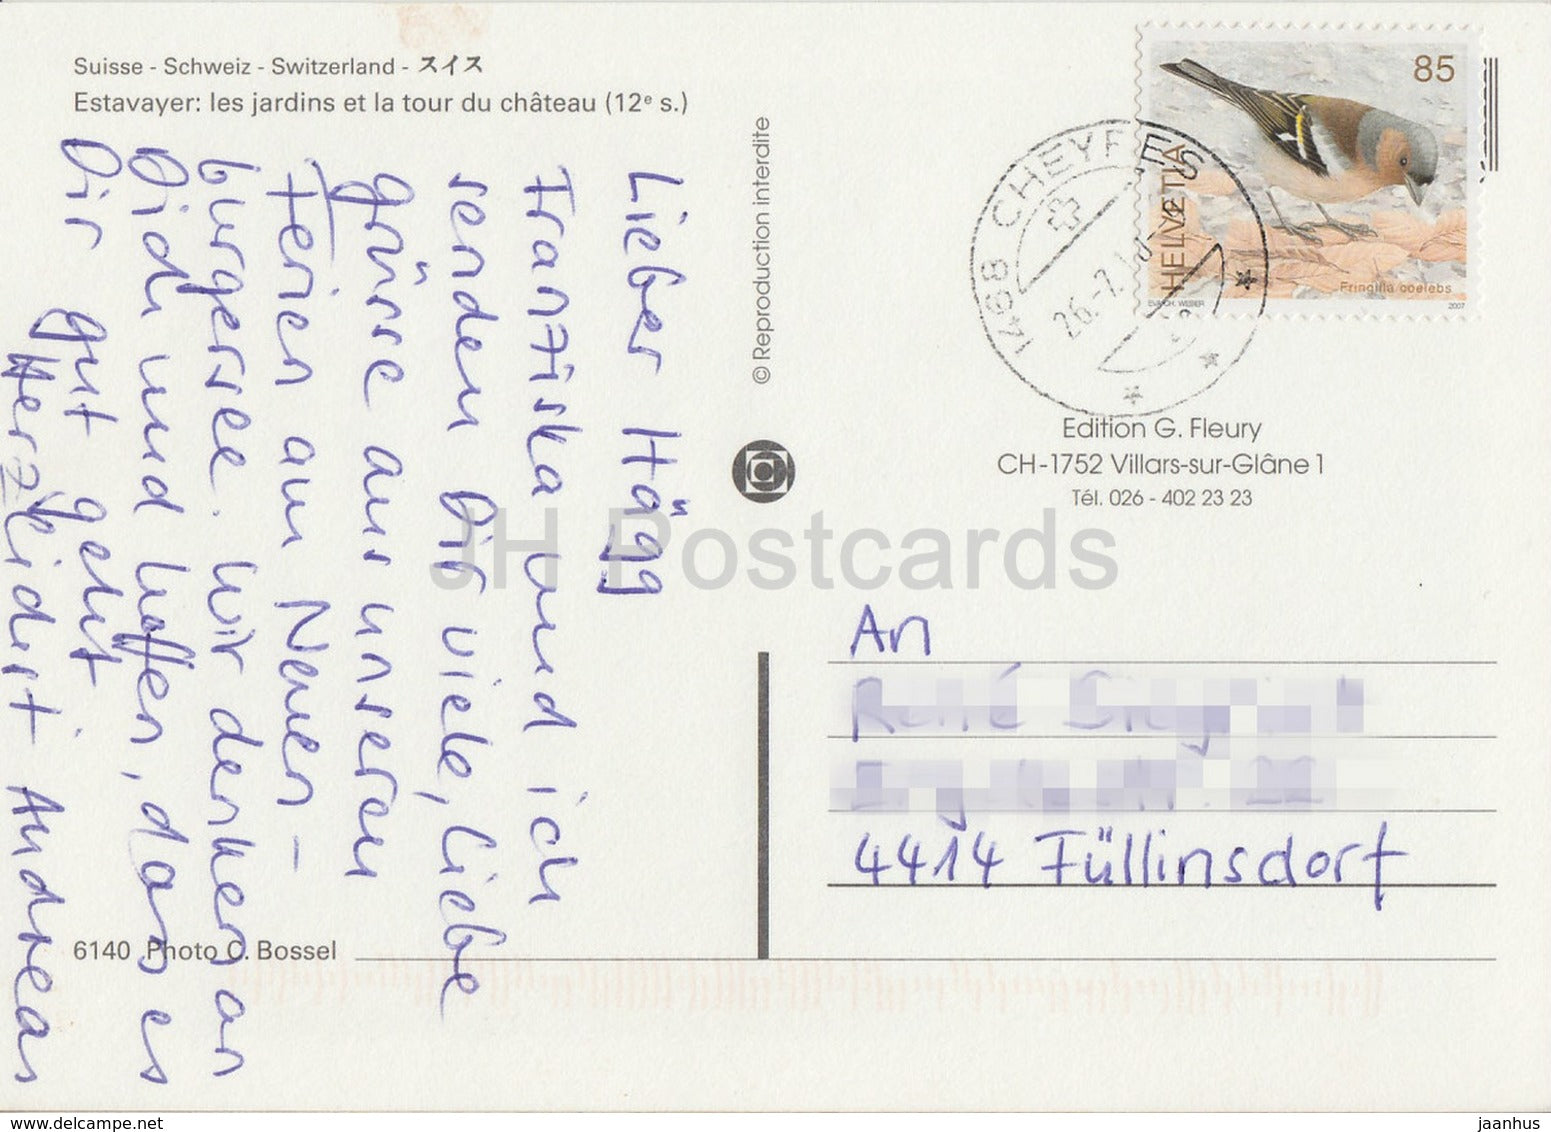 Suisse - Schweiz - Switzerland - スイス
Estavayer: les jardins et la tour du château (12e s.)
Lieber Hägg
Franziska und ich
senden Dir viele, liebe
grüsse aus unseren
Ferien am Neuen-
burgersee. Wir denken an
Dich und hoffen, dass es
Dir gut geht
Herzlichst Andreas
6140 Photo C. Bossel
© Reproduction interdite
85
HELVETIA
Fringilla coelebs
EVA CH. WEBER
2007
1468 CHEYRES
26.-7.
Edition G. Fleury
CH-1752 Villars-sur-Glâne 1
Tél. 026 - 402 23 23
JH Postcards
An
René
4414 Füllinsdorf
www.delcampe.net
jaanhus